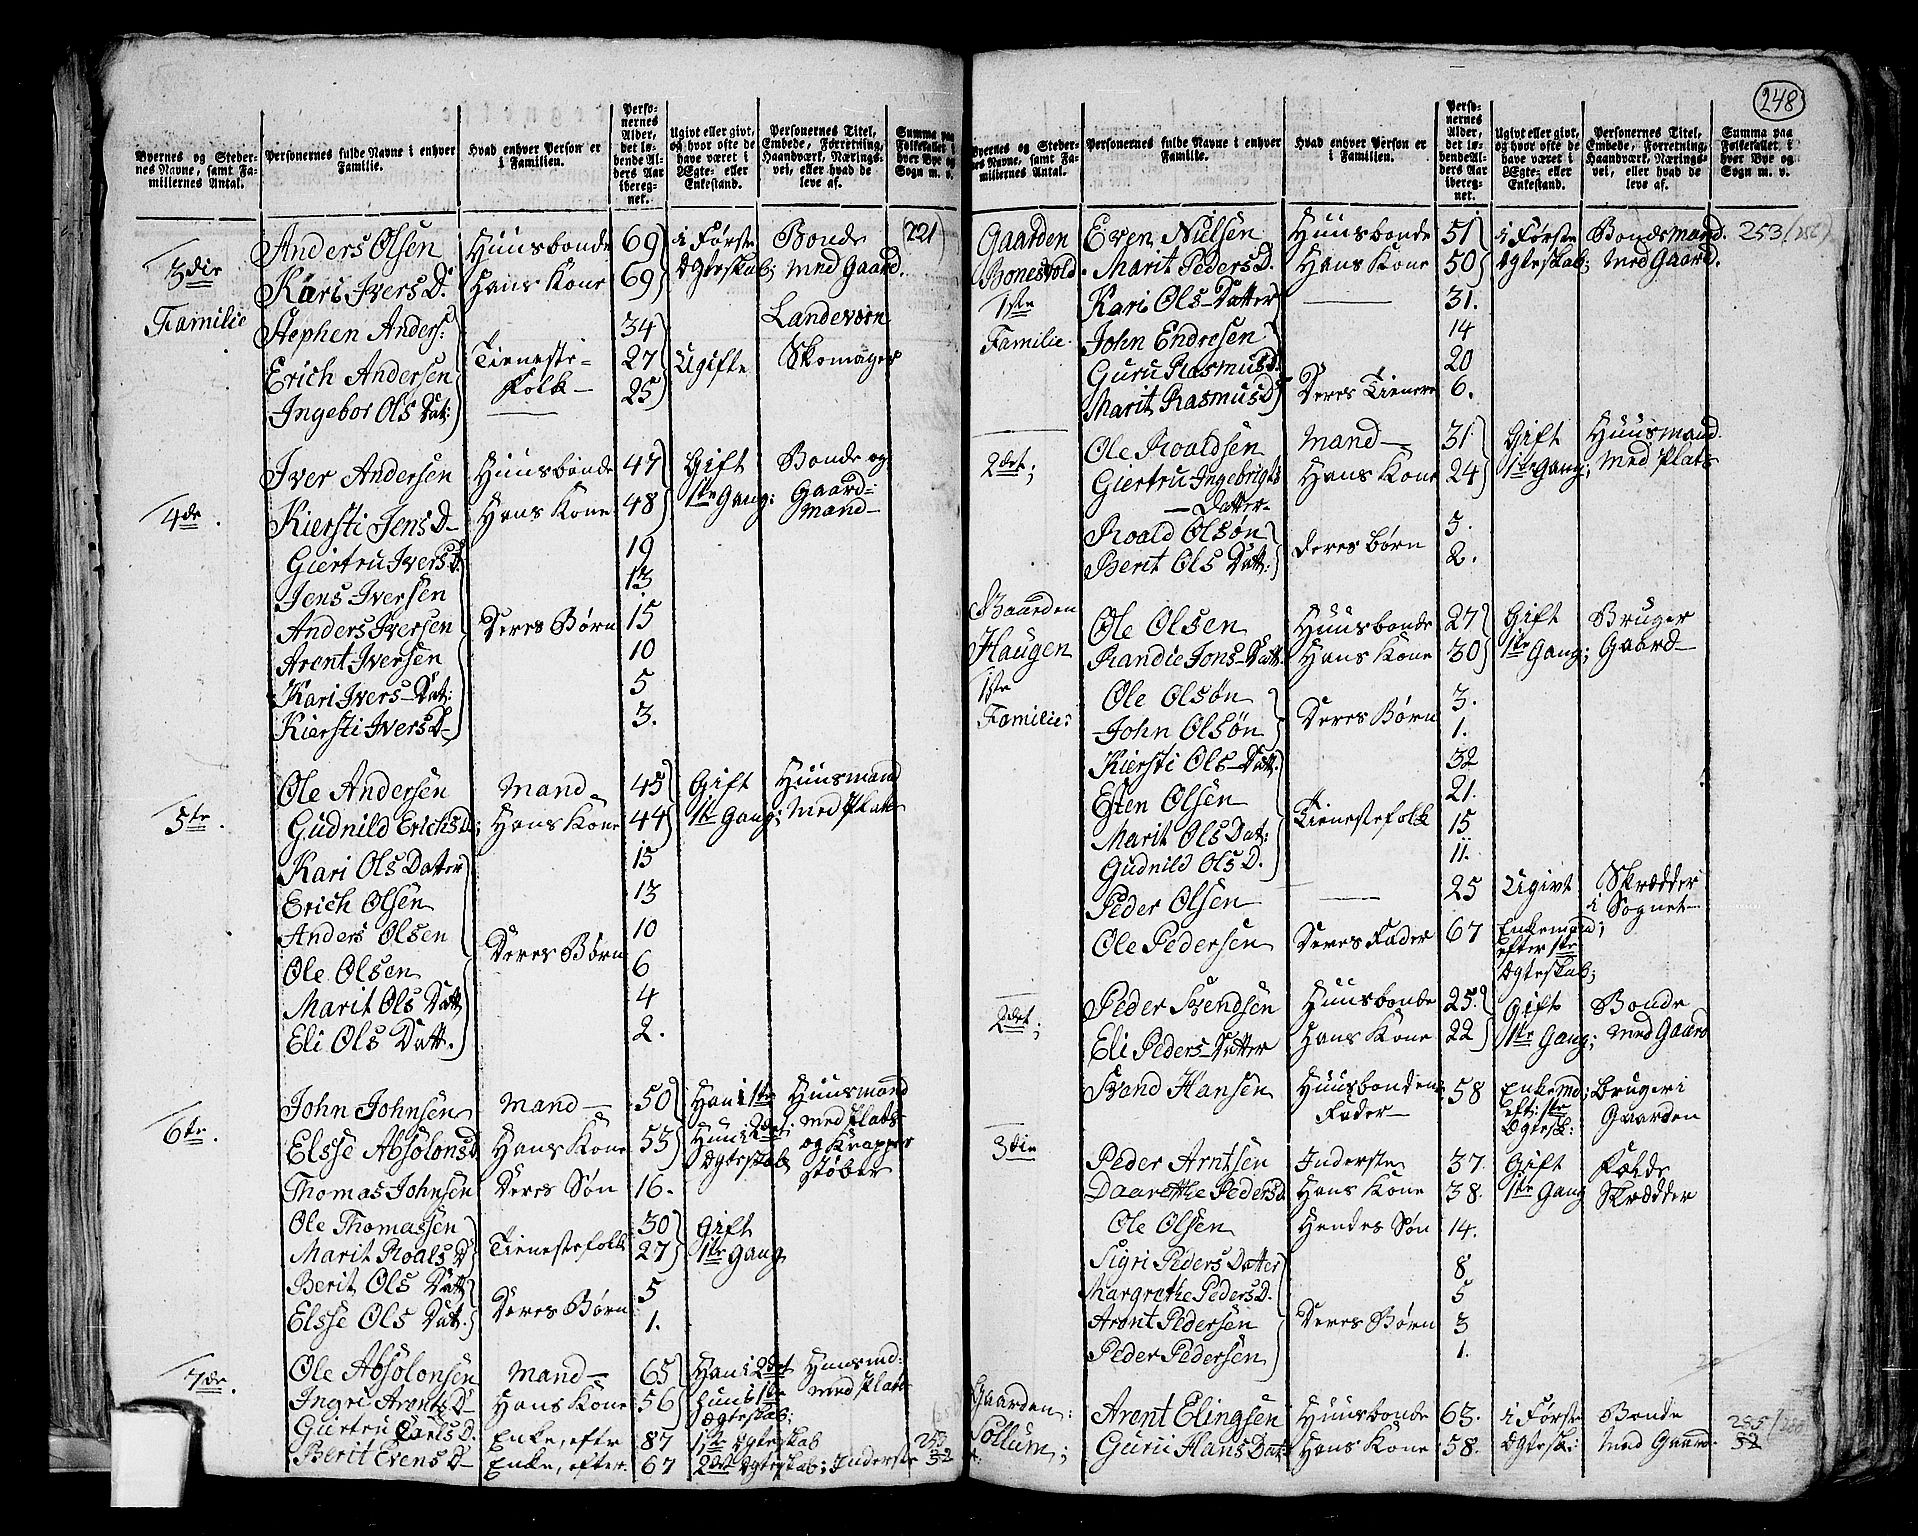 248
Byernes og Steder- nes Navne, samt Fa- milliernes Antal.
Personernes fulde Navne i enhver Familie.
Hvad enhver Person er i Familien.
Perso- nernes Alder, det lø- bende Al- ders Aar iberegnet.
Ugivt eller givt, og hvor ofte de have været i Ægte- eller Enkestand.
Personernes Titel, Embede, Forretning, Haandværk, Nærings- vei, eller hvad de leve af.
Summa paa Folketallet i hver Bye og Sogn m. v.
3die Familie
Anders Olsen Huusbonde 69 i Første Bonde (221)
Kari Ivers D. Hans Kone 69 Ægteskab; med Gaard.
Stephen Anders: 34 Landevern
Erich Andersen Tieneste- 27 Ugifte Skomager
Ingebor Ols Dat: Folk 25
4de.
Iver Andersen Huusbonde 47 Gift Bonde og
Kiersti Jens D Hans Kone 48 1te Gang; Gaard- mand
Giertru Ivers D. 19
Jens Iversen 13
Anders Iversen Deres Børn 15
Arent Iversen 10
Kari Ivers Dat: 5
Kiersti Ivers D 3.
5te.
Ole Andersen Mand 45 Gift Huusmand
Gudnild Erichs D; Hans Kone 44 1te Gang; med Plads
Kari Ols Datter 15
Erich Olsen 13
Anders Olsen 10
Ole Olsen Deres Børn 6
Marit Ols Datt 4
Eli Ols Datt. 2.
6te.
John Johnsen Mand 50 Han i 1te Huusmand
Elsse Absolons D Hans Kone 53 Hun i 2det; med Plads
Ægteskab og Knapper støber
Thomas Johnsen Deres Søn 16.
Ole Thomassen 30 Gift
Marit Roals D Tienestefolk 27 1te Gang
Berit Ols Datt 5
Elsse Ols Dat. Deres Børn 1.
7de.
Ole Absolonsen Mand 65 Han i 2det Huusmd:
Ingri Arents D Hans Kone 56 hun i 1te med Plads
Ægteskab;
Giertru Carls D. Enke, efter 87 1te Ægteskab
Berit Evens D Enke, efter 67 2det Ægteskab; Inderste 253 32
Byernes og Steder- nes Navne, samt Fa- milliernes Antal.
Personernes fulde Navne i enhver Familie.
Hvad enhver Person er i Familien.
Perso- nernes Alder, det lø- bende Al- ders Aar iberegnet.
Ugivt eller givt, og hvor ofte de have været i Ægte- eller Enkestand.
Personernes Titel, Embede, Forretning, Haandværk, Nærings- vei, eller hvad de leve af.
Summa paa Folketallet i hver Bye og Sogn m. v.
Gaarden Bonesvold 1ste Familie.
Even Nilsen Huusbonde 51 i Første Bondemand. 253
Marit Peders D. Hans Kone 50 Ægteskab; med Gaard.
Kari Ols Datter 31.
John Endresen 14
Guru Rasmus D. 20
Marit Rasmus D Deres Tienere 6.
2det;
Ole Roaldsen Mand 31 Gift Huusmand
Giertru Ingebrigts Datter Hans Kone 24 1te Gang; med Plads
Roald Olsøn 5.
Berit Ols Datt: deres børn 2.
Gaarden Haugen 1ste Familie:
Ole Olsen Huusbonde 27 Gift Bruger
Randie Jons Datt. Hans Kone 30 1te Gang; Gaard
Ole Olsøn 3.
John Olsøn Deres Børn 1.
Kiersti Ols Datt. 32
Esten Olsen 21.
Marit Ols Dat: Tienestefolk 15
Gudnild Ols D. 11.
Peder Olsen 25 Ugivt Skrædder i Sognet
Ole Pedersen Deres Fader 67 Enkemand; efter 1te Ægteskab;
2det;
Peder Svendsen Huusbonde 25. Gift Bonde
Eli Peders Datter Hans Kone 22 1te Gang; med Gaard
Svend Hansen Huusbondens Fader 58 Enkemd; eft: 1te Ægtesk: bruger i Gaarden
3die
Peder Arntsen Inderste 37. Gift
Daarethe Peders D. Hans Kone 38. 1te Gang Skrædder
Ole Olsen Hendes Søn 14.
Sigri Peders Datter 8
Margrethe Peders D. 5
Arent Pedersen Deres Børn 3
Peder Pedersen 1.
Gaarden: Sollum;
Arent Elingsen Huusbonde 63. i Første Bonde
Guru Hans Dat Hans Kone 58. Ægtesk: med Gaard. 32